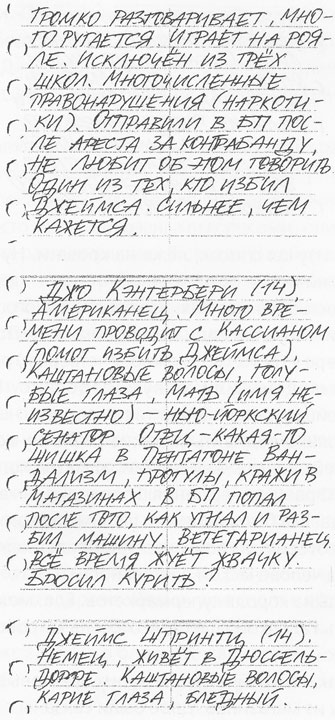 ГРОМКО РАЗГОВАРИВАЕТ, МНО-
ГО РУГАЕТСЯ. ИГРАЕТ НА РОЯ-
ЛЕ. ИСКЛЮЧЁН ИЗ ТРЁХ
ШКОЛ. МНОГОЧИСЛЕННЫЕ
ПРАВОНАРУШЕНИЯ (НАРКОТИ-
КИ). ОТПРАВИЛИ В БП ПОС-
ЛЕ АРЕСТА ЗА КОНТРАБАНДУ,
НЕ ЛЮБИТ ОБ ЭТОМ ГОВОРИТЬ.
ОДИН ИЗ ТЕХ, КТО ИЗБИЛ
ДЖЕЙМСА. СИЛЬНЕЕ, ЧЕМ
КАЖЕТСЯ.
ДЖО КЭНТЕРБЕРИ (14).
АМЕРИКАНЕЦ. МНОГО ВРЕ-
МЕНИ ПРОВОДИТ С КАССИАНОМ
(ПОМОГ ИЗБИТЬ ДЖЕЙМСА).
КАШТАНОВЫЕ ВОЛОСЫ, ГОЛУ-
БЫЕ ГЛАЗА, МАТЬ (ИМЯ НЕ-
ИЗВЕСТНО) – НЬЮ-ЙОРКСКИЙ
СЕНАТОР. ОТЕЦ – КАКАЯ-ТО
ШИШКА В ПЕНТАГОНЕ. ВАН-
ДАЛИЗМ, ПРОГУЛЫ, КРАЖИ В
МАГАЗИНАХ, В БП ПОПАЛ
ПОСЛЕ ТОГО, КАК УГНАЛ И РАЗ-
БИЛ МАШИНУ. ВЕГЕТАРИАНЕЦ.
ВСЁ ВРЕМЯ ЖУЁТ ЖВАЧКУ.
БРОСИЛ КУРИТЬ?
ДЖЕЙМС ШПРИНТЦ (14).
НЕМЕЦ, ЖИВЁТ В ДЮССЕЛЬ-
ДОРФЕ. КАШТАНОВЫЕ ВОЛОСЫ,
КАРИЕ ГЛАЗА, БЛЕДНЫЙ.